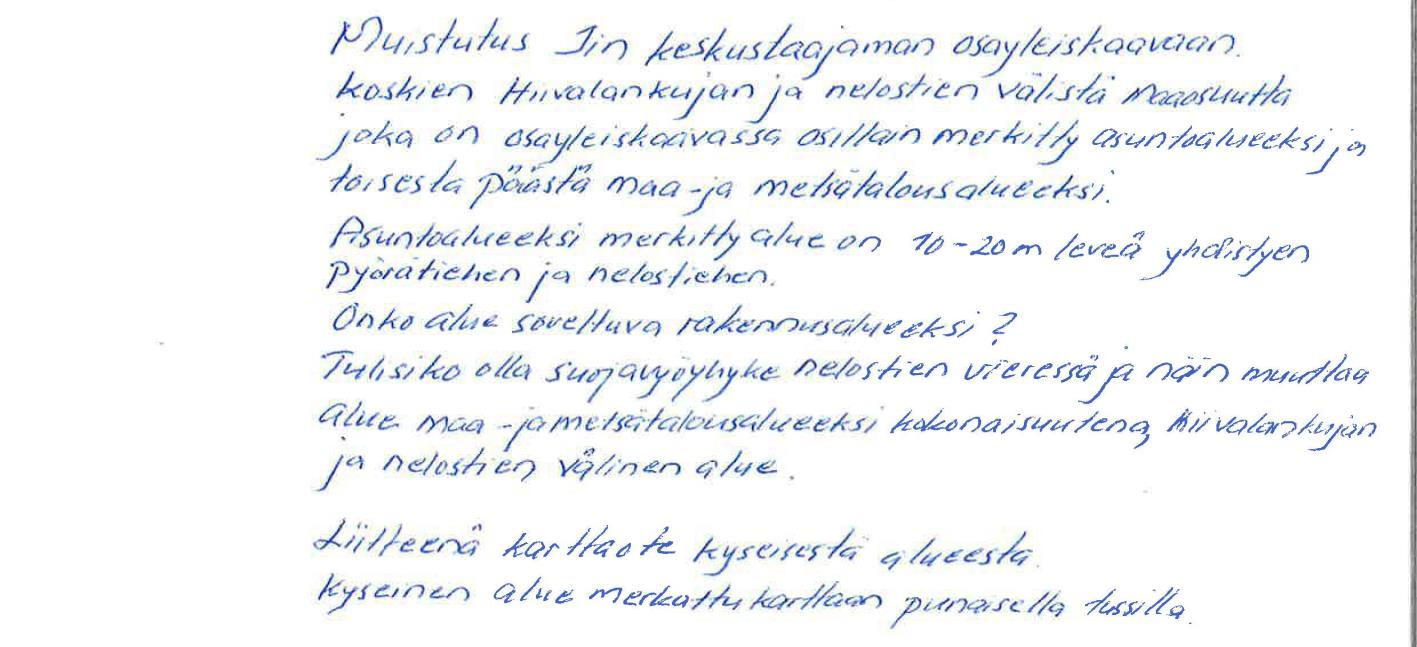 Muistutus Iin keskustaajaman osayleiskaavaan.
koskien Hiivalankujan ja nelostien välistä maaosuutta
joka on osayleiskaavassa osittain merkitty asuntoalueeksi ja
toisesta päästä maa-ja metsätalousalueeksi.
Asuntoalueeksi merkitty alue on 10-20 m leveä yhdistyen
pyörätiehen ja nelostiehen.
Onko alue soveltuva rakennusalueeksi?
Tulisiko olla suojavyöyhyke nelostien vieressä ja näin muuttaa
alue maa-ja metsätalousalueeksi kokonaisuutena, Hiivalankujan
ja nelostien välinen alue.
Liitteenä karttaote kyseisestä alueesta.
Kyseinen alue merkattu karttaan punaisella tussilla.